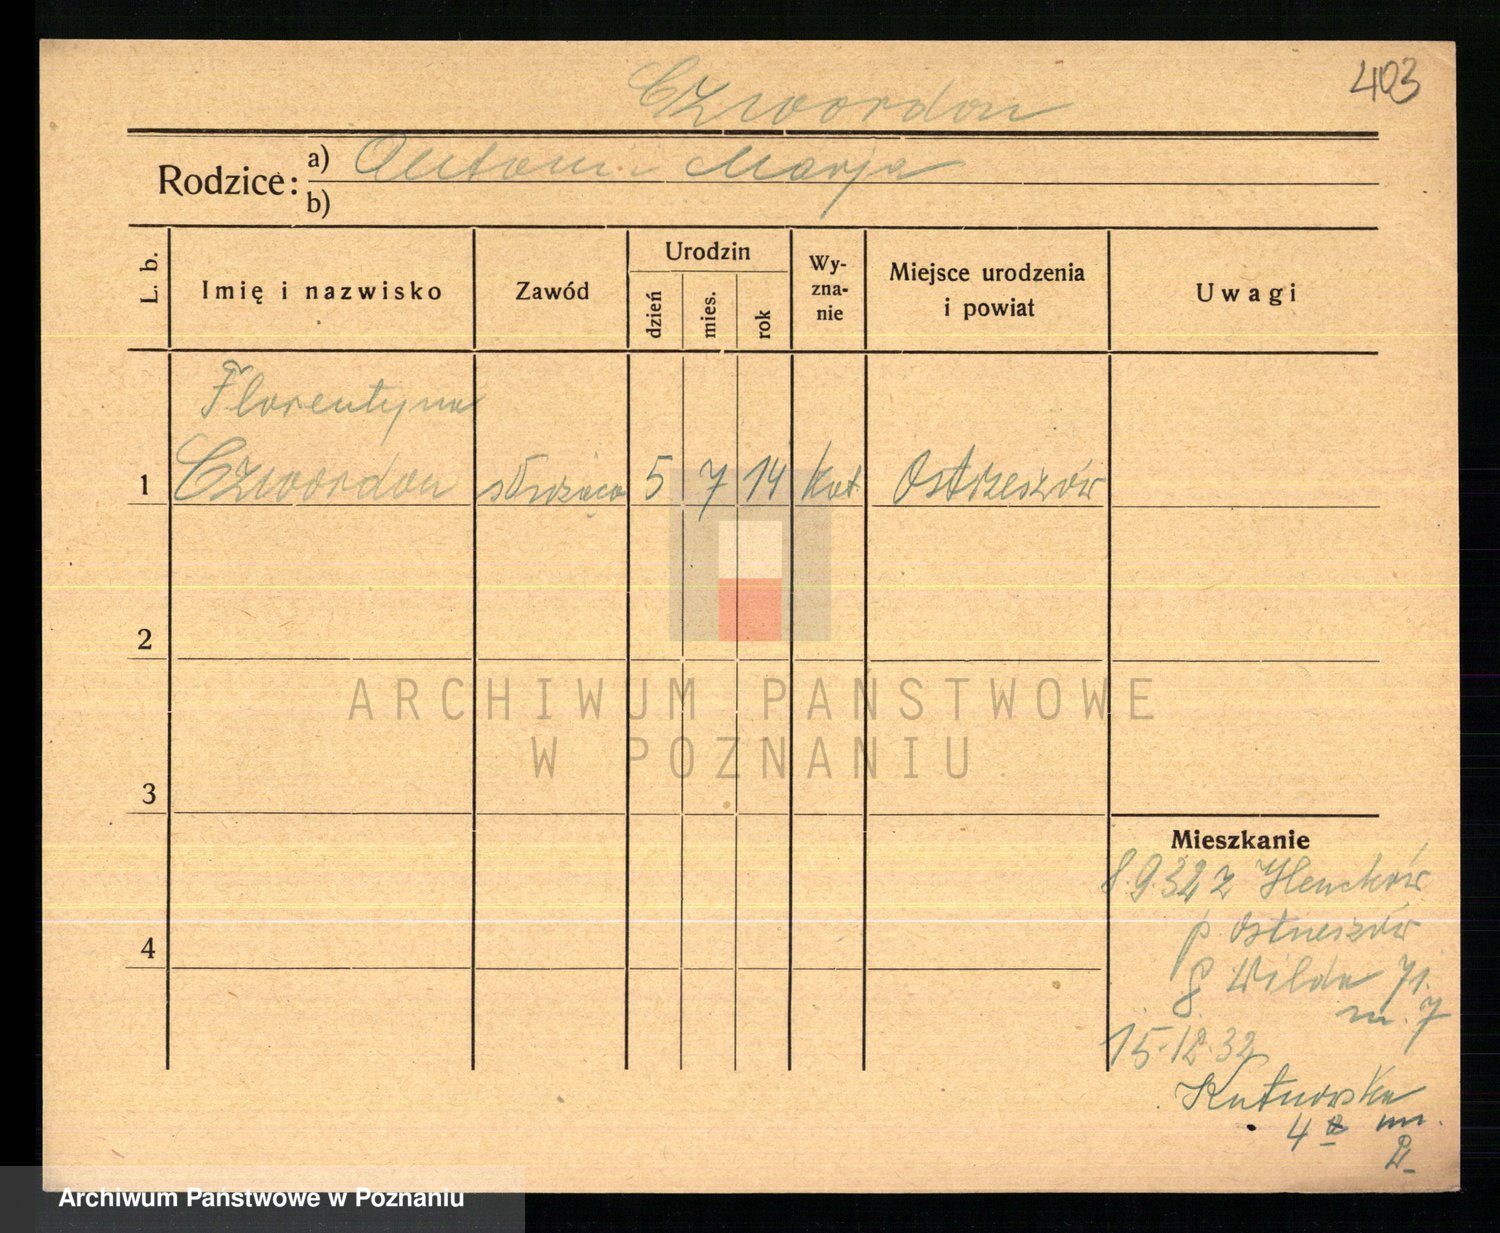 403
Czwordon
Rodzice: a) Antoni Marja
b)
L. b.
Imię i nazwisko
Zawód
Urodzin
dzień
mies.
rok
Wy-
zna-
nie
Miejsce urodzenia
i powiat
Uwagi
Florentyna
1 Czwordon służąca 5 7 14 Kat Ostrzeszów
2
3
4
Mieszkanie
8.9.32 z
p. Ostrzeszów
Wilda 71.
m. 7
15.12.32
Kutnowska
4 m.
2
ARCHIWUM PAŃSTWOWE
W POZNANIU
Archiwum Państwowe w Poznaniu